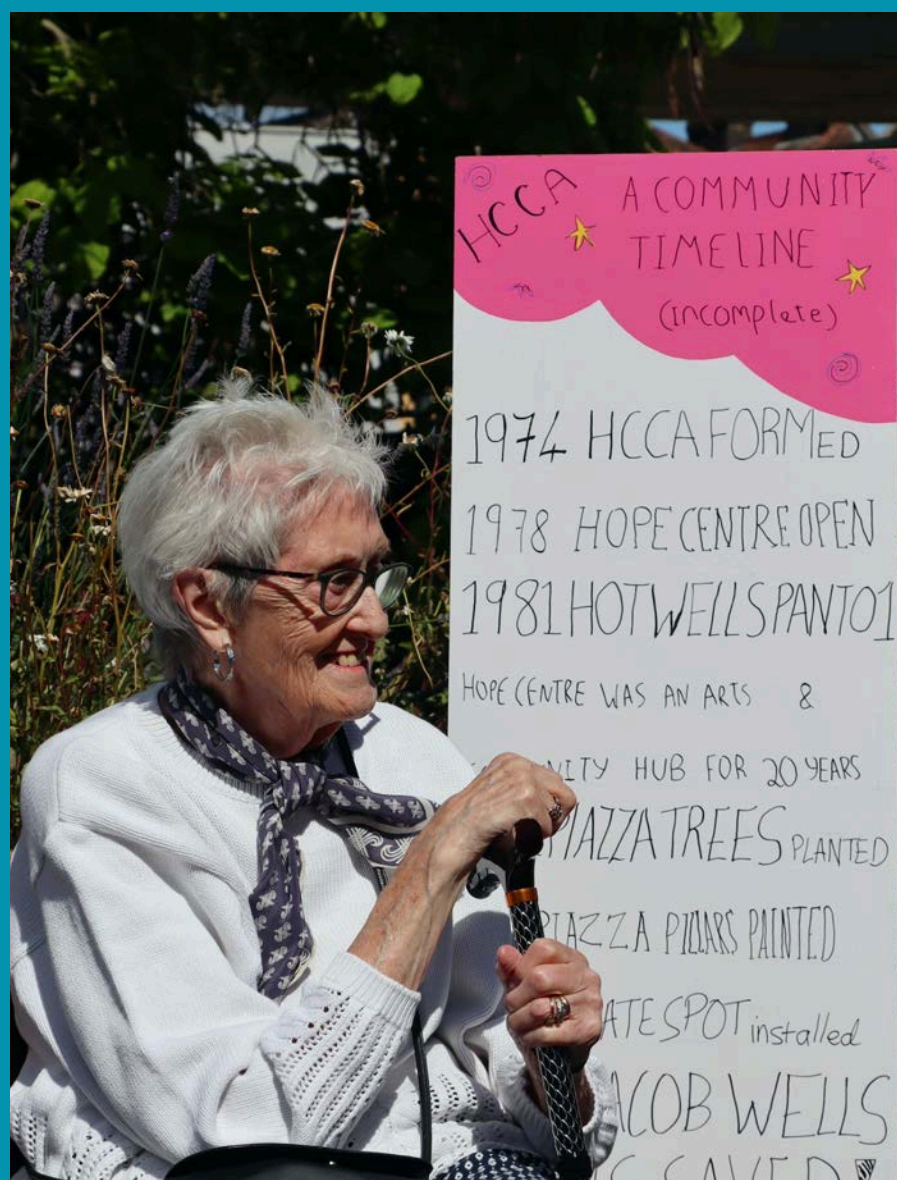 HCCA
A COMMUNITY
TIMELINE
(incomplete)
1974 HCCA FORMED
1978 HOPE CENTRE OPEN
1981 HOTWELLS PANTO 1
HOPE CENTRE WAS AN ARTS &
HUB FOR 20 YEARS
PIAZZA TREES PLANTED
PIAZZA PILLARS PAINTED
SPOT installed
WELLS
SAVED!